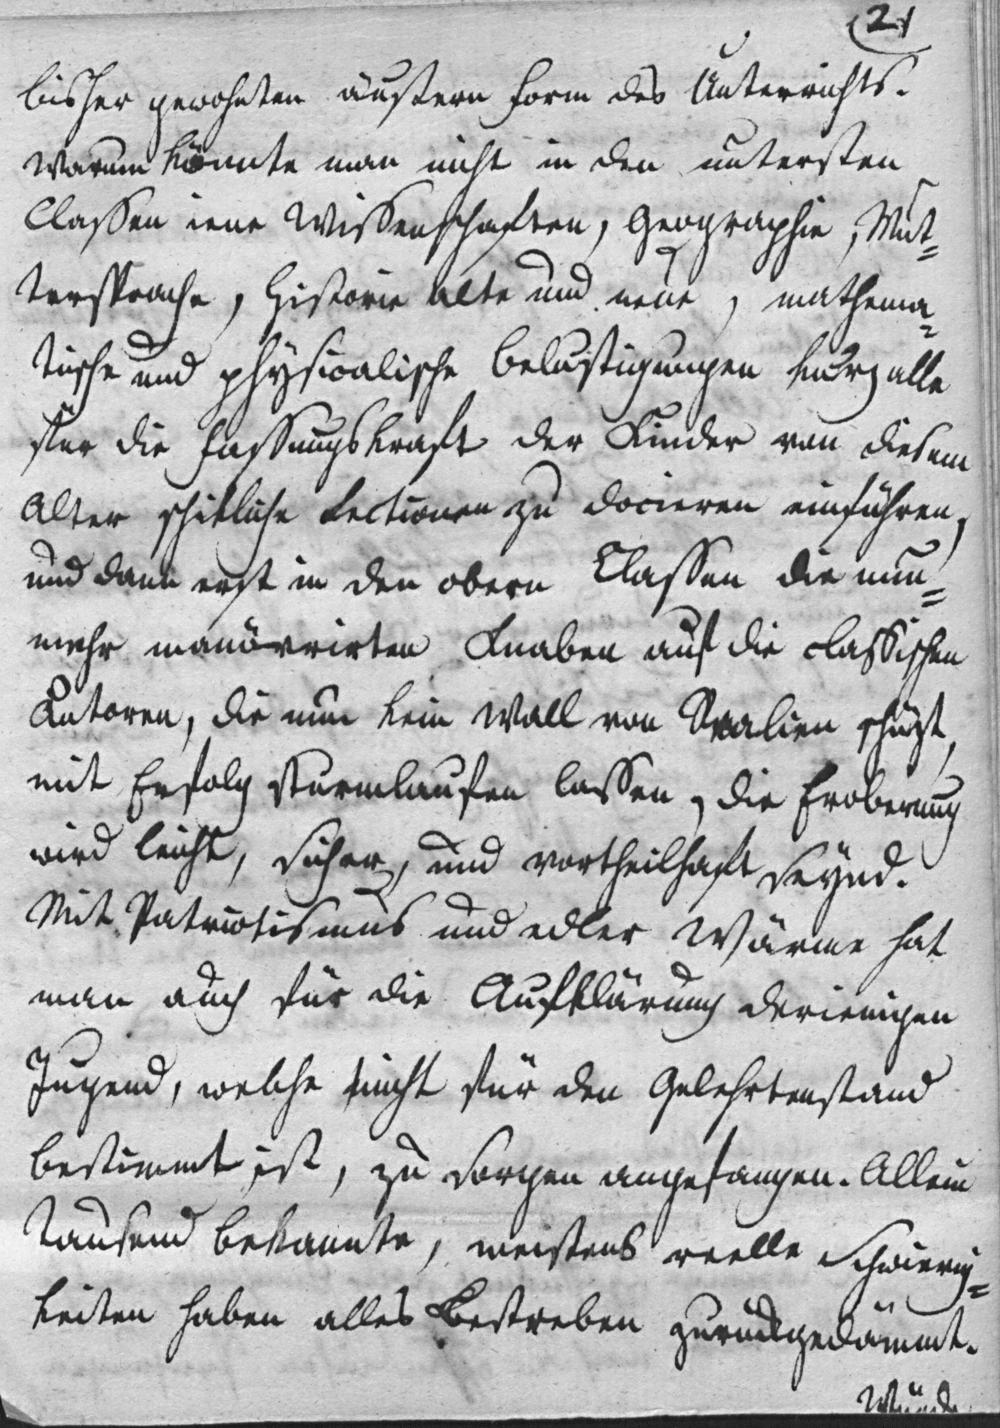 (21
bisher gewohnten äußern Form des Unterrichts.
Warum könnte man nicht in den untersten
Classen iene Wissenschaften, Geographie, Mut=
tersprache, Historie alte und neue, mathema=
tische und physicalische Belustigungen kurz alle
für die Fassungskraft der Kinder von diesem
Alter schikliche Lectionen zu docieren einführen,
und dann erst in den obern Classen die nun=
mehr manövrirten Knaben auf die classischen
Autoren, die nun kein Wall von Realien schüzt,
mit Erfolg sturmlaufen lassen, die Eroberung
wird leicht, sicher, und vortheilhaft seynd.
Mit Patriotismus und edler Wärme hat
man auch für die Aufklärung derienigen
Jugend, welche nicht für den Gelehrtenstand
bestimmt ist, zu sorgen angefangen. Allein
tausend bekannte, meistens reelle Schwierig=
keiten haben alles Bestreben zurückgedämmt.
Würde